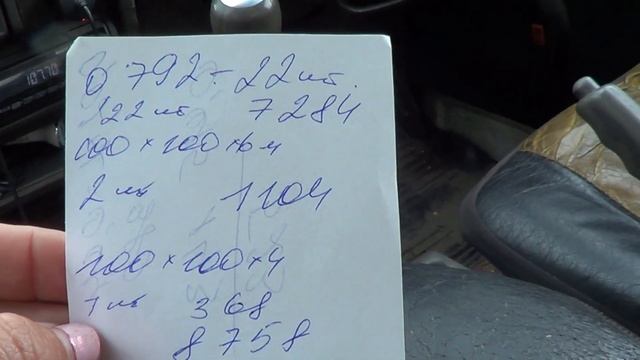 0.792 - 22 шт.
122 шт 7284
100 × 100 × 6 м
2 шт 1104
100 × 100 × 4
1 шт 368
8758